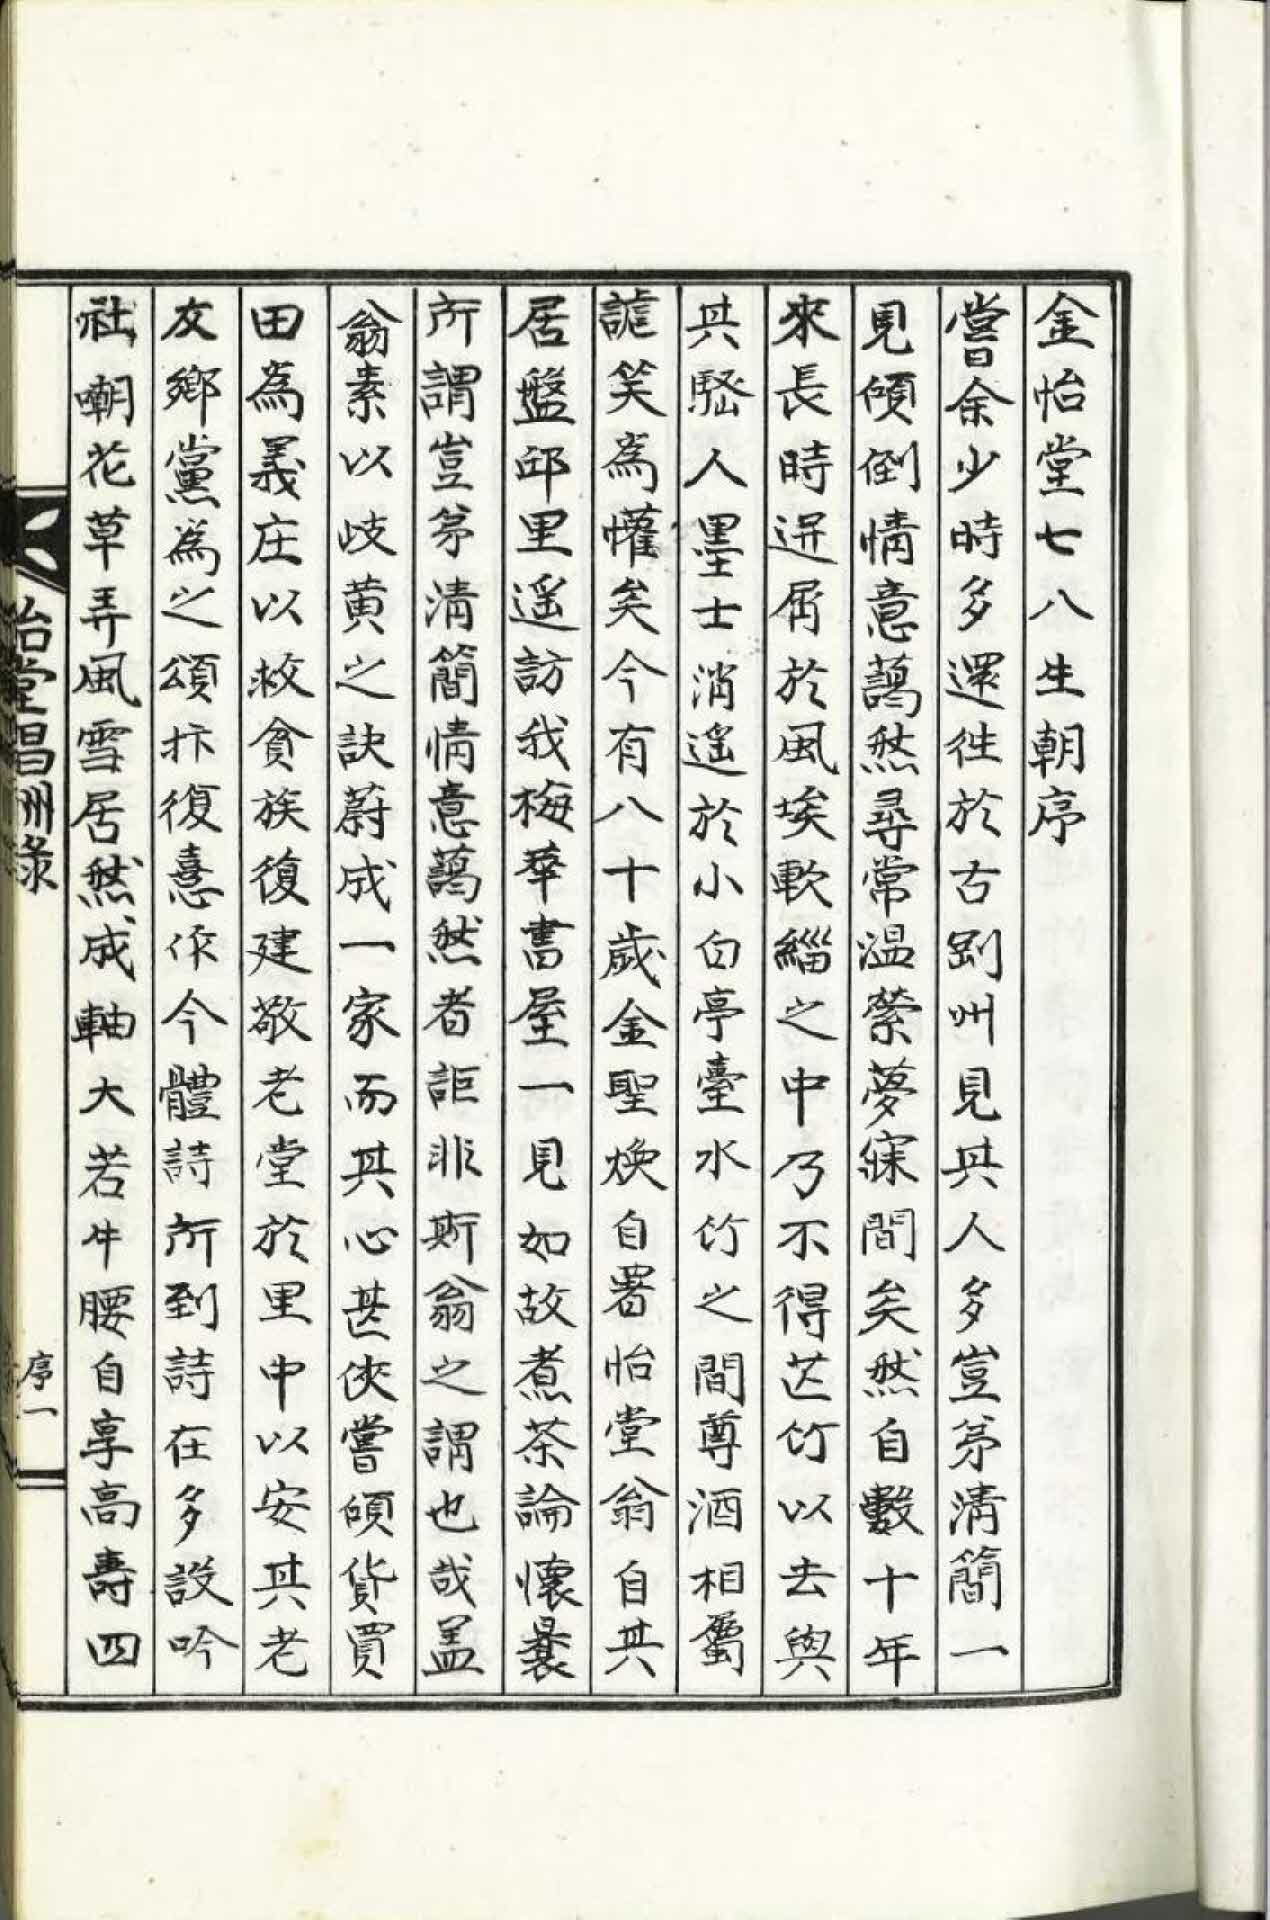 金怡堂七八生朝序
嘗余少時多還徃於古剡州見其人多豈弟清簡一
見傾倒情意藹然尋常温縈夢寐間矣然自數十年
來長時迸屑於風埃軟緇之中乃不得芒竹以去與
其騷人墨士消遥於小白亭臺水竹之間尊酒相屬
謔笑爲懽矣今有八十歲金聖煥自署怡堂翁自其
居盤邱里遥訪我梅華書屋一見如故煮茶論懷曩
所謂豈弟清簡情意藹然者詎非斯翁之謂也哉盖
翁素以岐黄之訣蔚成一家而其心甚俠嘗傾貨買
田為義庄以救貧族復建敬老堂於里中以安其老
友鄉黨為之頌抃復憙作今體詩所到詩在多設吟
社嘲花草弄風雪居然成軸大若牛腰自享高壽四
怡堂昌洲錄
序一